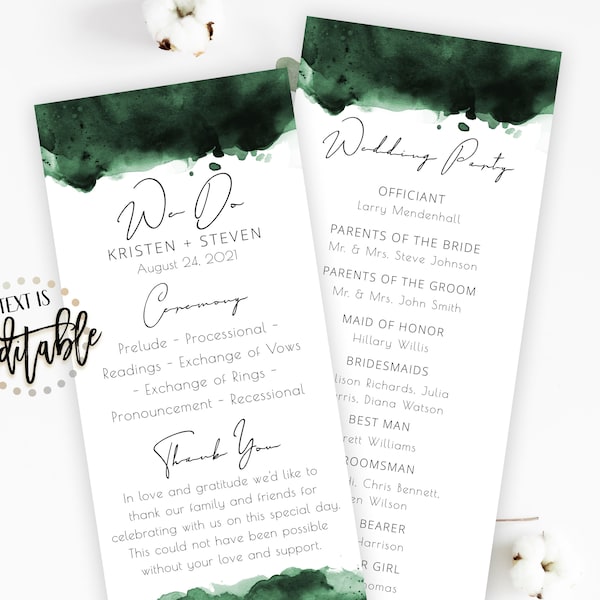 We Do
KRISTEN + STEVEN
August 24, 2021
Ceremony
Prelude - Processional -
Readings - Exchange of Vows
- Exchange of Rings -
Pronouncement - Recessional
Thank You
In love and gratitude we'd like to
thank our family and friends for
celebrating with us on this special day.
This could not have been possible
without your love and support.
Wedding Party
OFFICIANT
Larry Mendenhall
PARENTS OF THE BRIDE
Mr. & Mrs. Steve Johnson
PARENTS OF THE GROOM
Mr. & Mrs. John Smith
MAID OF HONOR
Hillary Willis
BRIDESMAIDS
Richards, Julia
Diana Watson
BEST MAN
Williams
Chris Bennett,
Wilson
BEARER
Harrison
GIRL
TEXT IS